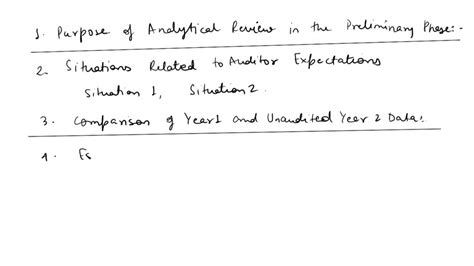 1. Purpose of Analytical Review in the Preliminary Phase:-
2. Situations Related to Auditor Expectations
Situation 1, Situation 2.
3. Comparison of Year 1 and Unaudited Year 2 Data:
4. Es